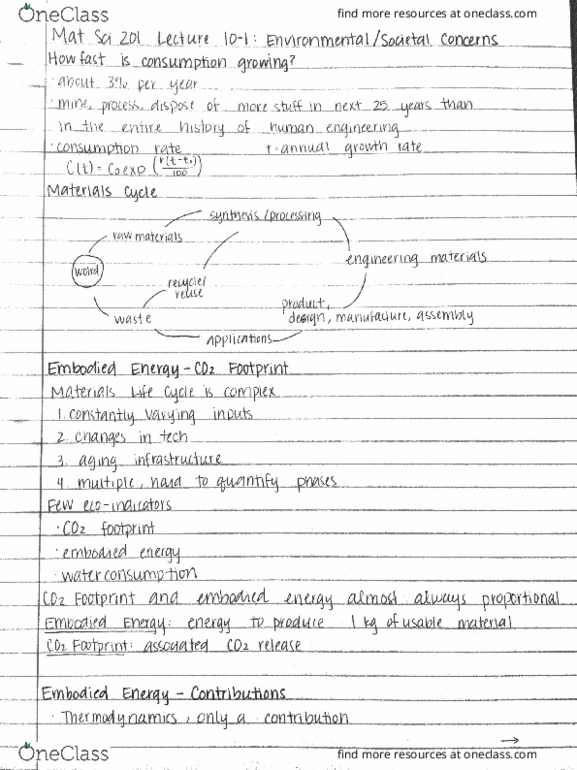 OneClass
find more resources at oneclass.com
Mat Sci 201 Lecture 10-1: Environmental/Societal Concerns
How fast is consumption growing?
· about 3% per year
· mine, process, dispose of more stuff in next 25 years than
in the entire history of human engineering
· consumption rate r: annual growth rate
C(t) = C₀ exp (r(t-t₀)/100)
Materials Cycle
synthesis/processing
raw materials
engineering materials
world
recycle/
reuse
product,
design, manufacture, assembly
waste
applications
Embodied Energy - CO₂ Footprint
Materials Life Cycle is complex
1. constantly varying inputs
2. changes in tech
3. aging infrastructure
4. multiple, hard to quantify phases
Few eco-indicators
· CO₂ footprint
· embodied energy
· water consumption
CO₂ Footprint and embodied energy almost always proportional
Embodied Energy: energy to produce 1 kg of usable material
CO₂ Footprint: associated CO₂ release
Embodied Energy - Contributions
· Thermodynamics, only a contribution
→
OneClass
find more resources at oneclass.com